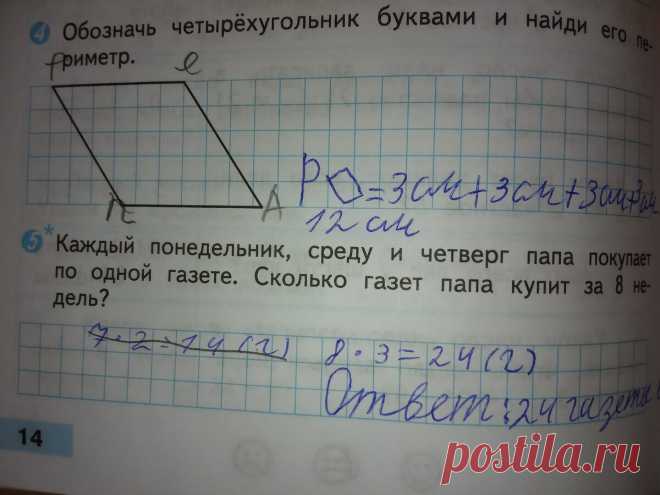 4 Обозначь четырёхугольник буквами и найди его пе-
риметр.
e
A
P = 3 см + 3 см + 3 см + 3 см
12 см
5* Каждый понедельник, среду и четверг папа покупает
по одной газете. Сколько газет папа купит за 8 не-
дель?
7 · 2 = 14 (г) 8 · 3 = 24 (г)
Ответ: 24 газеты
14
postila.ru